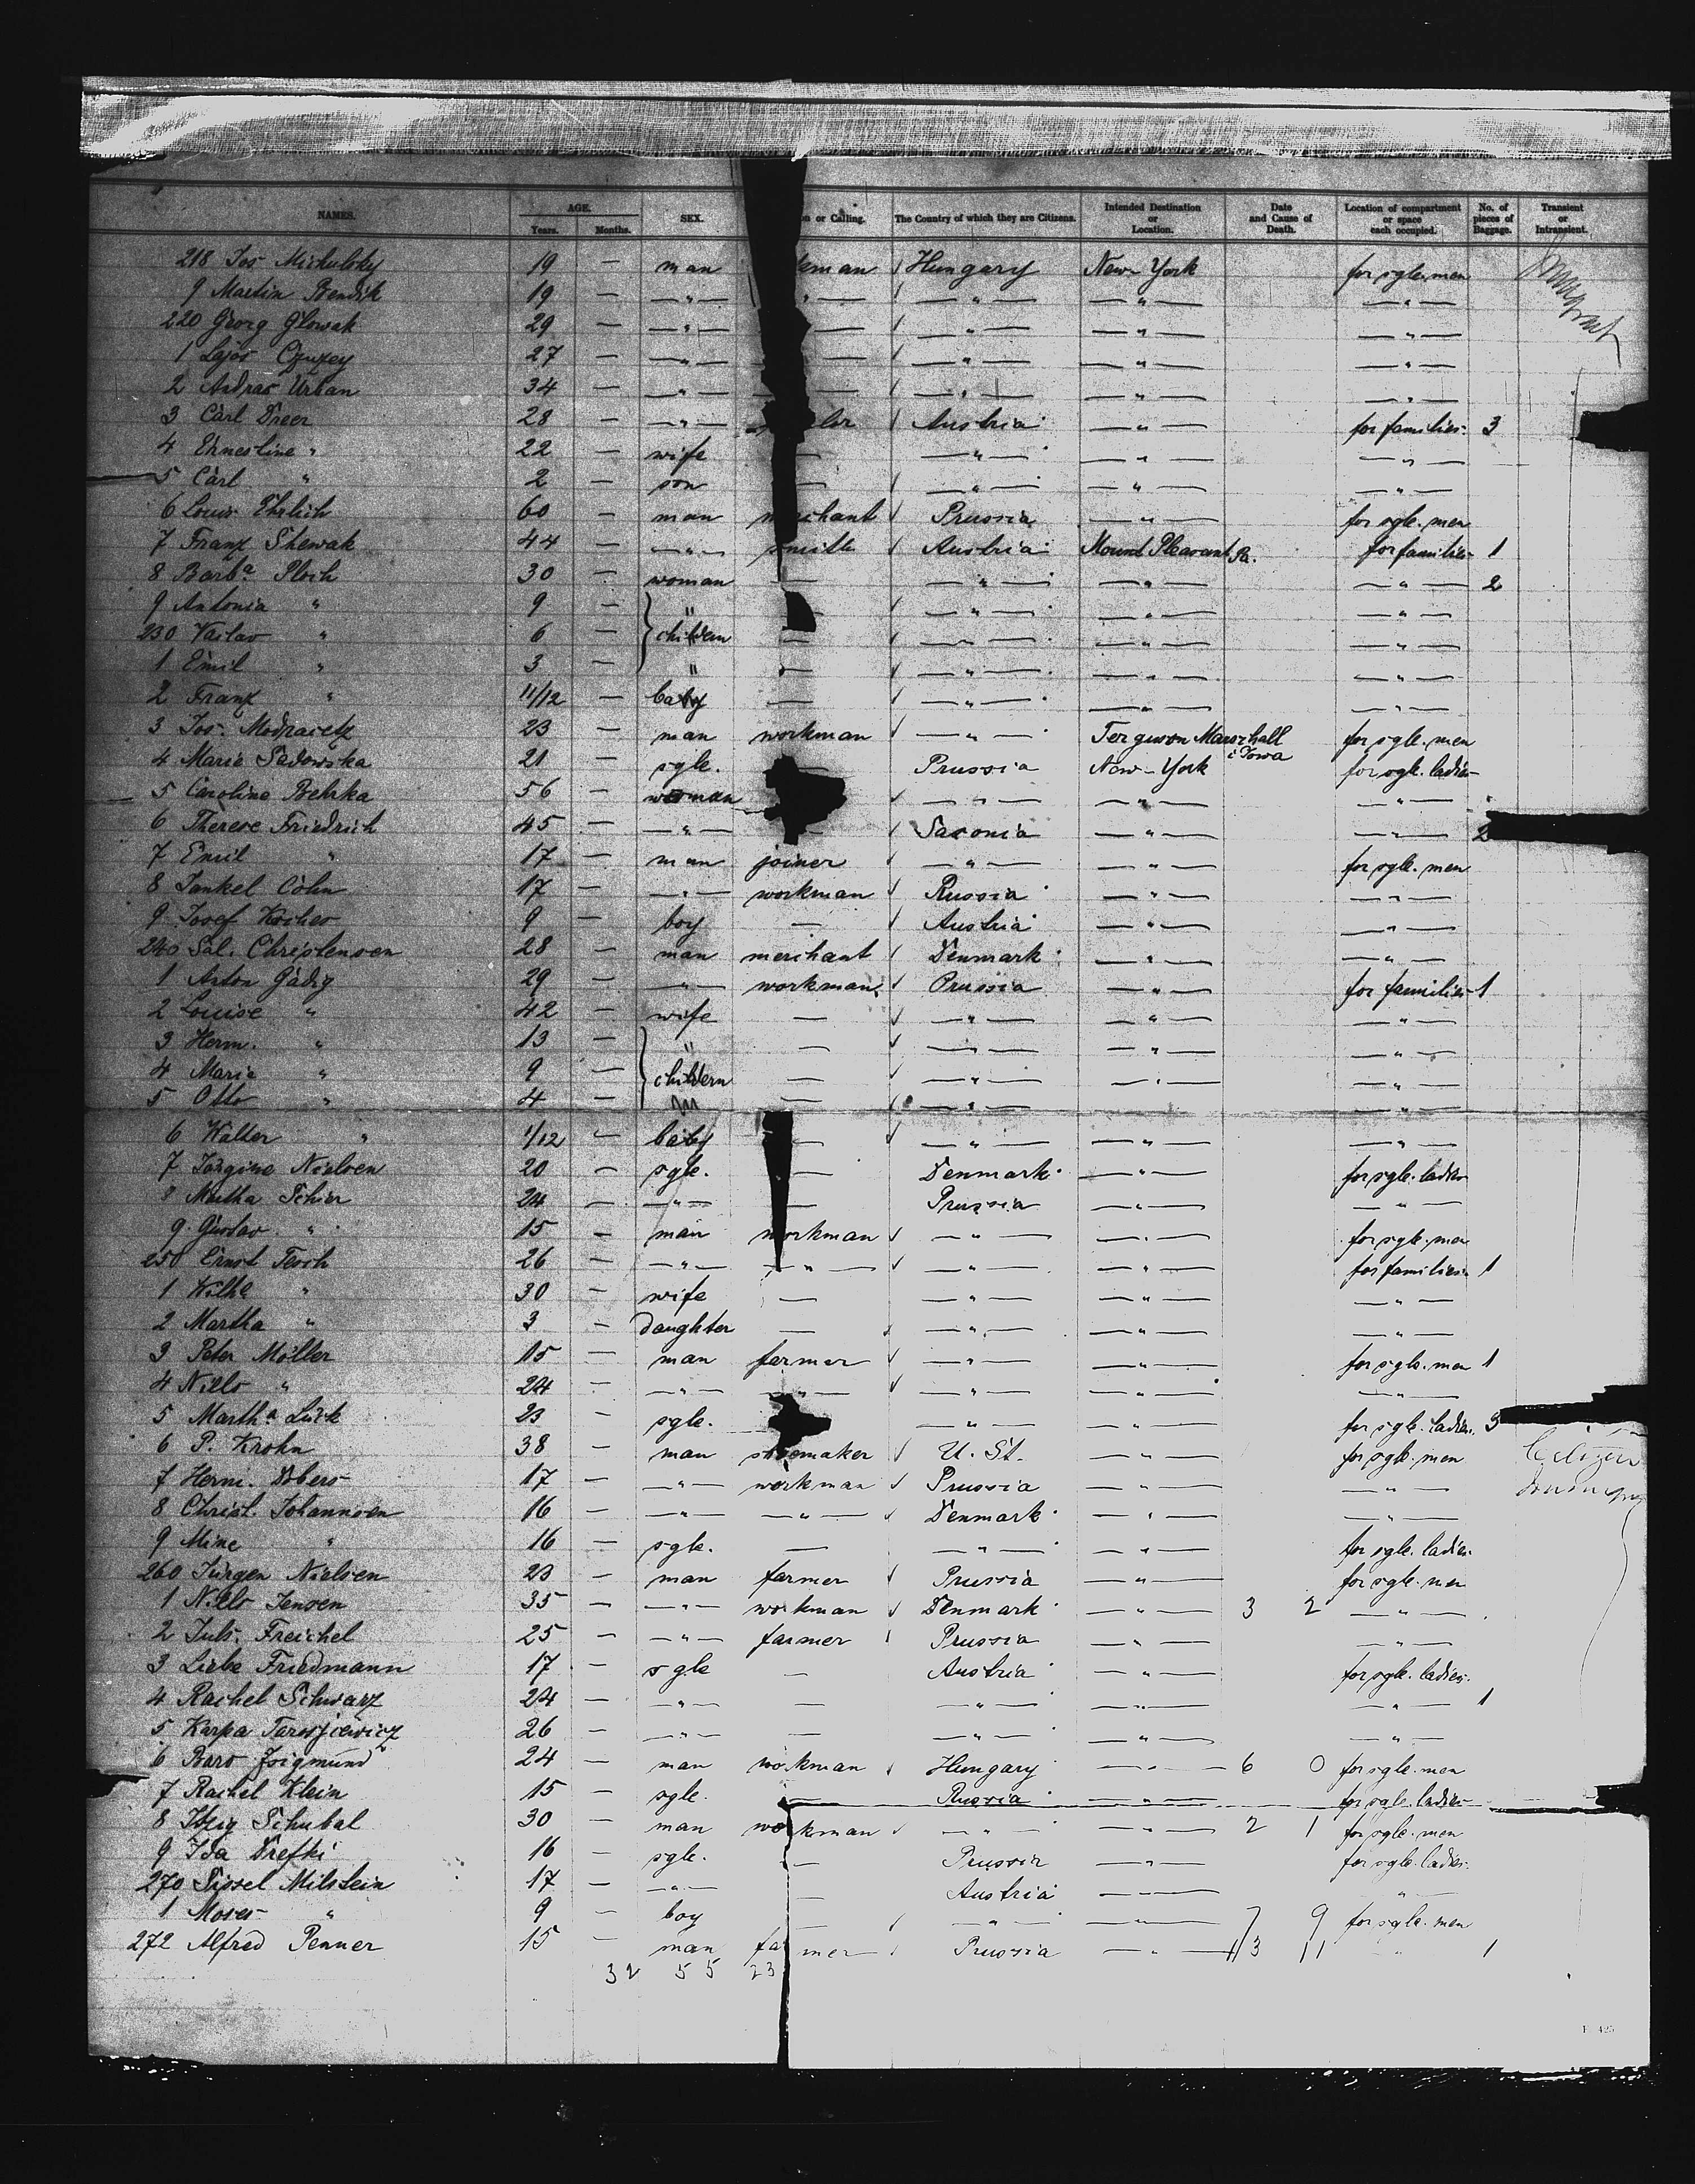 NAMES. AGE. Years. Months. SEX. or Calling. The Country of which they are Citizens. Intended Destination or Location. Date and Cause of Death. Location of compartment or space each occupied. No. of pieces of Baggage. Transient or Intransient.
218 Jos Michulsky 19 — man kman ✓ Hungary New-York for sgle. men
9 Martin Bendik 19 — —"— — ✓ —"— —"— —"—
220 Georg Glowak 29 — —"— — ✓ —"— —"— —"—
1 Lajos 27 — —"— — ✓ —"— —"— —"—
2 Andras Urban 34 — —"— — ✓ —"— —"— —"—
3 Carl Dreer 28 — —"— ler ✓ Austria —"— for families 3
4 Ernestine " 22 — wife — ✓ —"— —"— —"—
5 Carl " 2 — son — ✓ —"— —"— —"—
6 Louis Ehrlich 60 — man merchant ✓ Prussia —"— for sgle. men
7 Franz Shewak 44 — —"— smith ✓ Austria Mound Pleasant Pa. for families 1
8 Barba Ploch 30 — woman — ✓ —"— —"— —"— 2
9 Antonia " 9 — " — ✓ —"— —"— —"—
230 Vaclav " 6 — children — ✓ —"— —"— —"—
1 Emil " 3 — " — ✓ —"— —"— —"—
2 Franz " 11/12 — baby — ✓ —"— —"— —"—
3 Jos. Modracek 23 — man workman ✓ —"— Ferguson Marschall i Iowa for sgle. men
4 Marie Sadowska 21 — sgle. — Prussia New-York for sgle. ladies
5 Caroline Behrka 56 — woman ✓ —"— —"— —"—
6 Therese Friedrich 45 — —"— — ✓ Saxonia —"— —"— 2
7 Emil " 17 — man joiner ✓ —"— —"— for sgle. men
8 Jankel Cohn 17 — —"— workman ✓ Russia —"— —"—
9 Josef 9 — boy — ✓ Austria —"— —"—
240 Sal. Christensen 28 — man merchant ✓ Denmark —"— —"—
1 Anton Gädig 29 — —"— workman ✓ Prussia —"— for families 1
2 Louise " 42 — wife — ✓ —"— —"— —"—
3 Herm. " 13 — " — ✓ —"— —"— —"—
4 Maria " 9 — childern — ✓ —"— —"— —"—
5 Otto " 4 — " — ✓ —"— —"—
6 Walter " 1/12 — baby — ✓ —"— —"— —"—
7 Jörgine Nielsen 20 — sgle. — Denmark —"— for sgle. ladies
8 Martha Schier 24 — —"— — Prussia —"— —"—
9 Gustav " 15 — man workman ✓ —"— —"— for sgle. men
250 Ernst Tesch 26 — —"— —"— ✓ —"— —"— for families 1
1 Wilhe " 30 — wife — —"— —"— —"—
2 Martha " 3 — daughter — ✓ —"— —"— —"—
3 Peter Möller 15 — man farmer ✓ —"— —"— for sgle. men 1
4 Niels " 24 — —"— —"— ✓ —"— —"— —"—
5 Martha Lück 23 — sgle. —"— —"— for sgle. ladies 3
6 P. Krohn 38 — man shoemaker ✓ U. St. —"— for sgle. men Citizen
7 Herm. 17 — —"— workman ✓ Prussia —"— —"—
8 Christ. Johannsen 16 — —"— —"— ✓ Denmark —"— —"—
9 Mine " 16 — sgle. — —"— —"— for sgle. ladies
260 Jürgen Nielsen 23 — man farmer ✓ Prussia —"— for sgle. men
1 Niels Jensen 35 — —"— workman ✓ Denmark —"— 3 2 —"—
2 Juls. Freichel 25 — —"— farmer ✓ Prussia —"— —"—
3 Liebe Friedmann 17 — sgle — Austria —"— for sgle. ladies
4 Rachel Schwarz 24 — —"— — —"— —"— —"— 1
5 Karpa 26 — —"— — —"— —"— —"—
6 Baro Zsigmund 24 — man workman ✓ Hungary —"— 6 0 for sgle. men
7 Rachel Klein 15 — sgle. — Russia —"— for sgle. ladies
8 Itzig Schubal 30 — man workman ✓ —"— —"— 2 1 for sgle. men
9 Ida Drefki 16 — sgle. — Prussia —"— for sgle. ladies
270 Sissel Milstein 17 — —"— — Austria —"— —"—
1 Moses " 9 — boy — ✓ —"— —"— 7 9 for sgle. men
272 Alfred Penner 15 — man farmer ✓ Prussia —"— 13 11 " 1
32 55 23